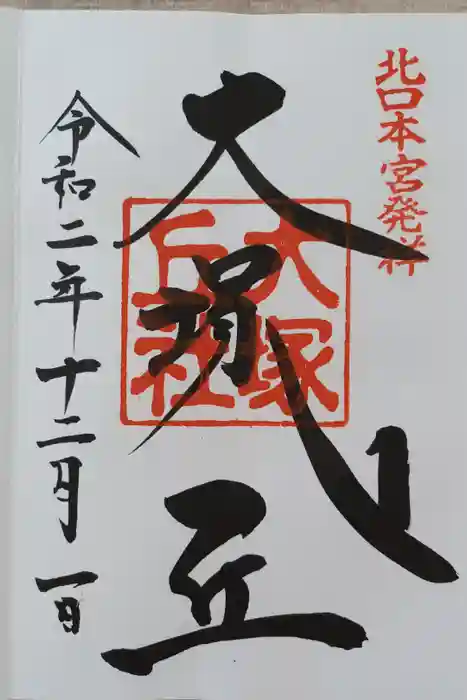 北口本宮発祥
大塚丘
大塚
丘社
令和二年十二月一日